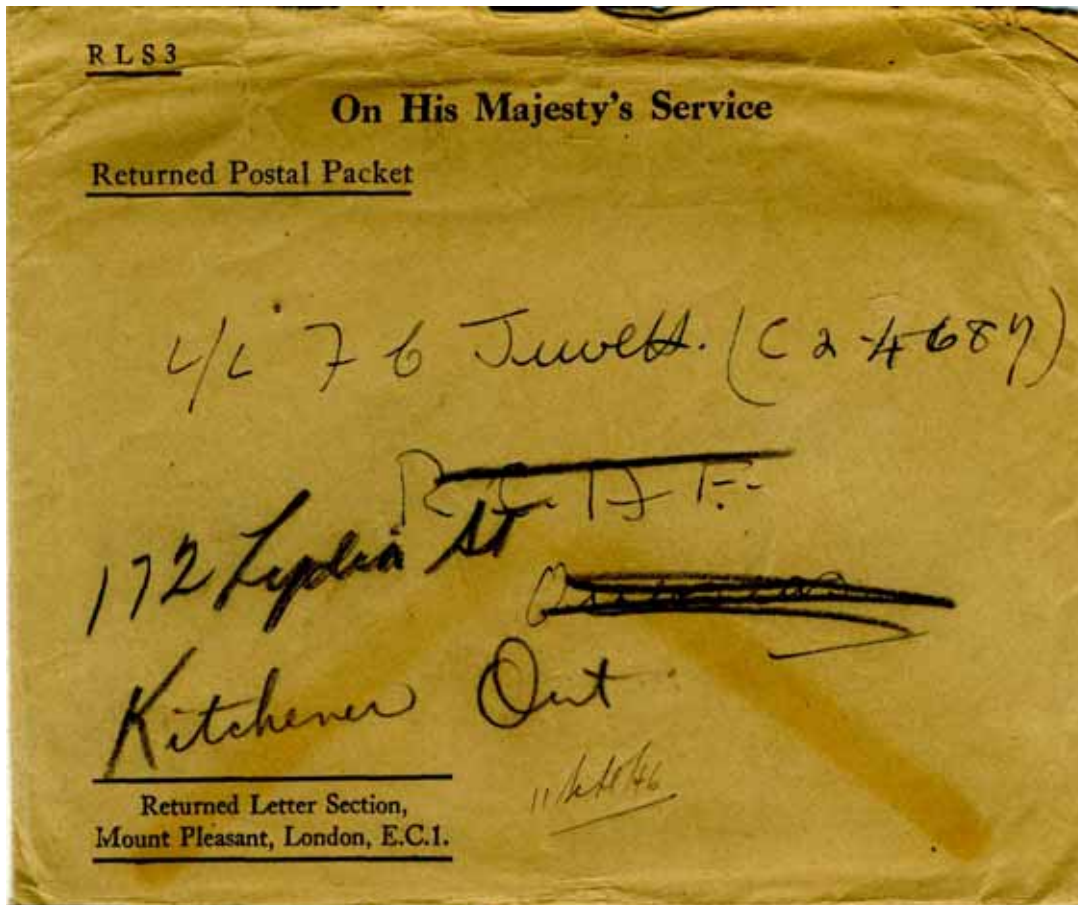 RLS3
On His Majesty's Service
Returned Postal Packet
(C24687)
R.C.A.F.
172 Lydia St
Kitchener Ont
11 Sept 46
Returned Letter Section,
Mount Pleasant, London, E.C.1.